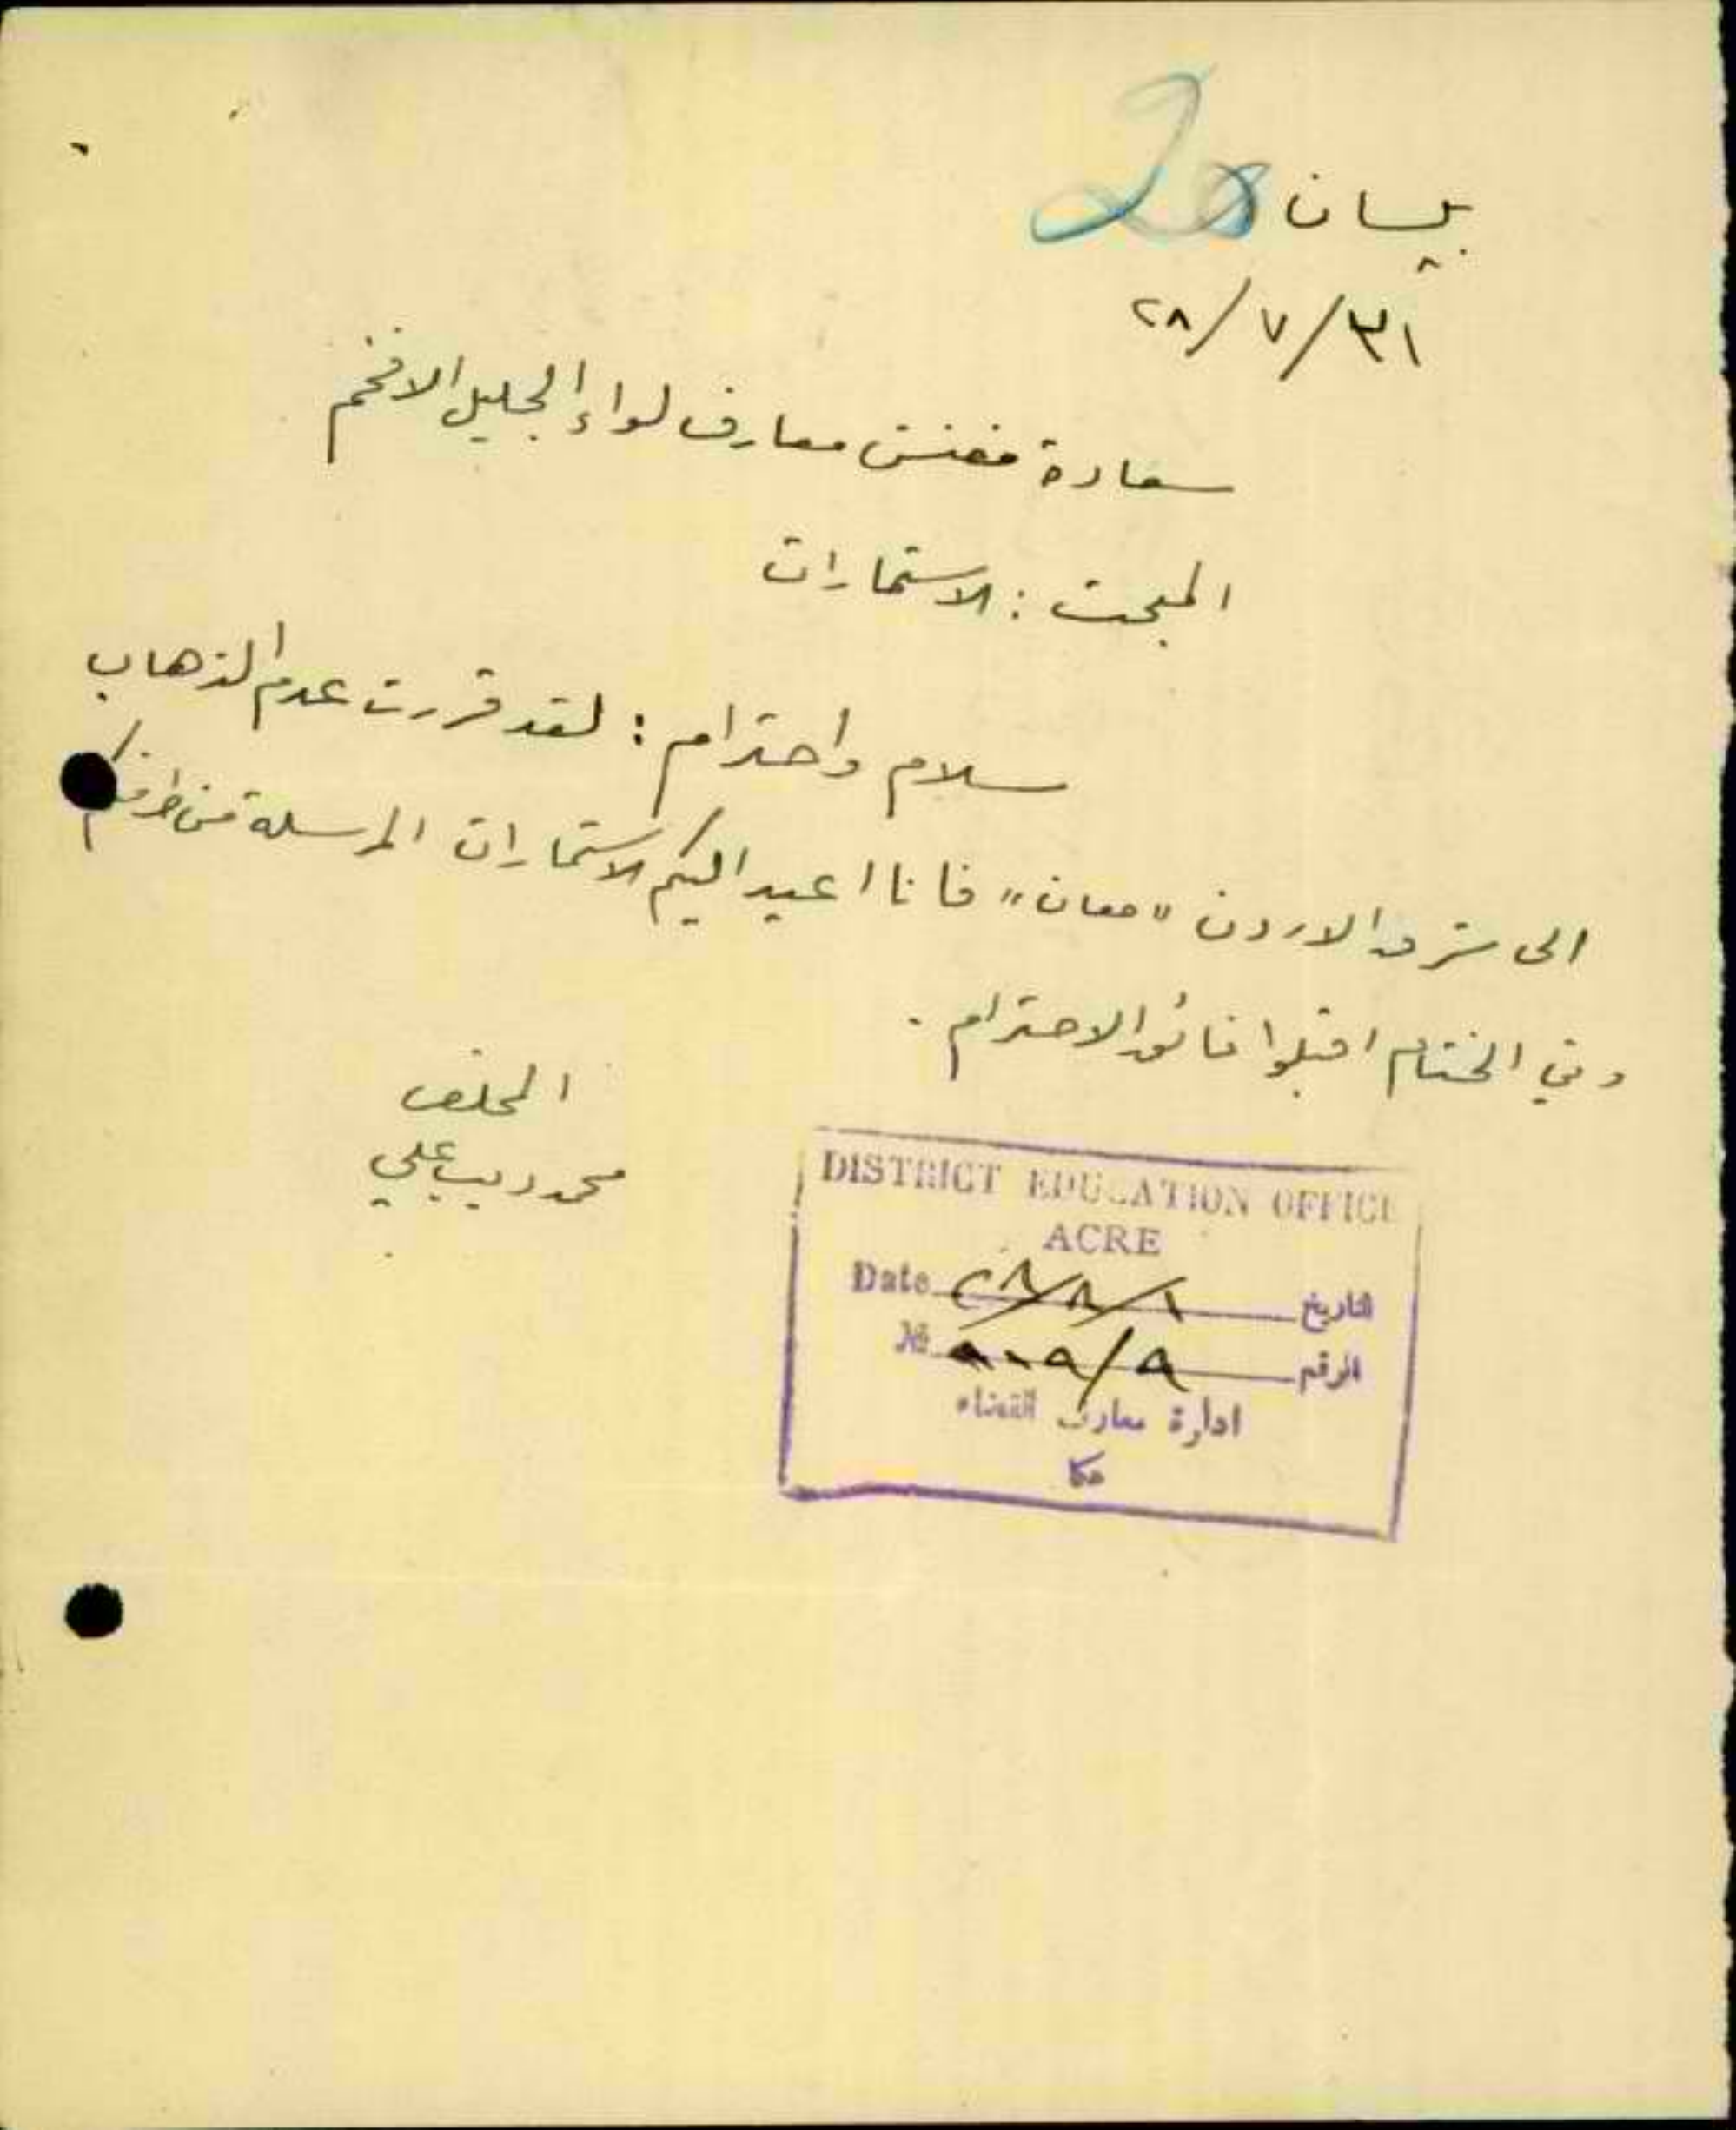 بيسان
20
٣١/٧/٢٨
سعادة مفتش معارف لواء الجليل الافخم
المبحث : الاستمارات
سلام واحترام : لقد قررت عدم الذهاب
الى شرق الاردن "معان" فانا اعيد اليكم الاستمارات المرسلة من طرفكم
وفي الختام اقبلوا فائق الاحترام .
المخلص
محمد ديب علي
DISTRICT EDUCATION OFFICE
ACRE
Date ٢٨/٨/١ التاريخ
№ ٩/٩ الرقم
ادارة معارف القضاء
عكا